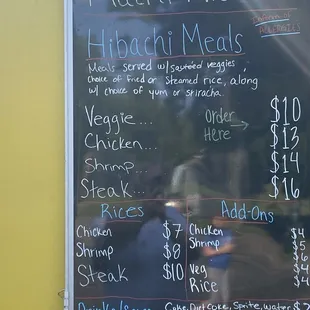 Hibachi Meals
Meals served w/ sautéed veggies,
choice of fried or steamed rice, along
w/ choice of yum or sriracha.
Veggie... $10
Order
Here →
Chicken... $13
Shrimp... $14
Steak... $16
Rices
Chicken $7
Shrimp $8
Steak $10
Add-Ons
Chicken $4
Shrimp $5
$6
Veg $4
Rice $4
Coke, Diet Coke, Sprite, Water